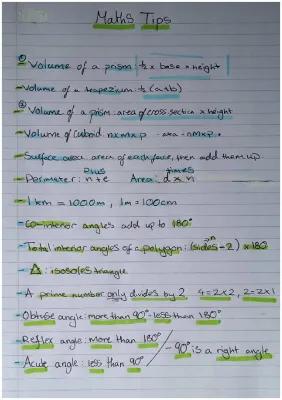 Maths Tips
① Volume of a prism: ½ x base x height
- Volume of a trapezium: ½ (a+b)
② Volume of a prism: area of cross section x height
- Volume of Cuboid: n x m x p - aka - nmxp.
- Surface area: area of each face, then add them up.
plus times
- Perimeter: n + e Area: d x n
- 1km = 1000m, 1m = 100cm
- Co-interior angles add up to 180°
- Total interior angles of a polygon: (sides - 2) x 180
- Δ: isosoles triangle
- A prime number only divides by 2 4=2x2, 2=2x1
- Obtuse angle: more than 90° - less than 180°
- Reflex angle: more than 180°
- 90° is a right angle
- Acute angle: less than 90°